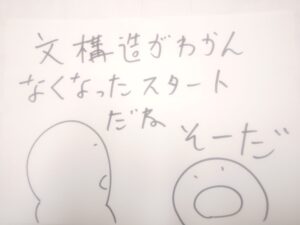 文構造がわかん
なくなったスタート
だね
そーだ